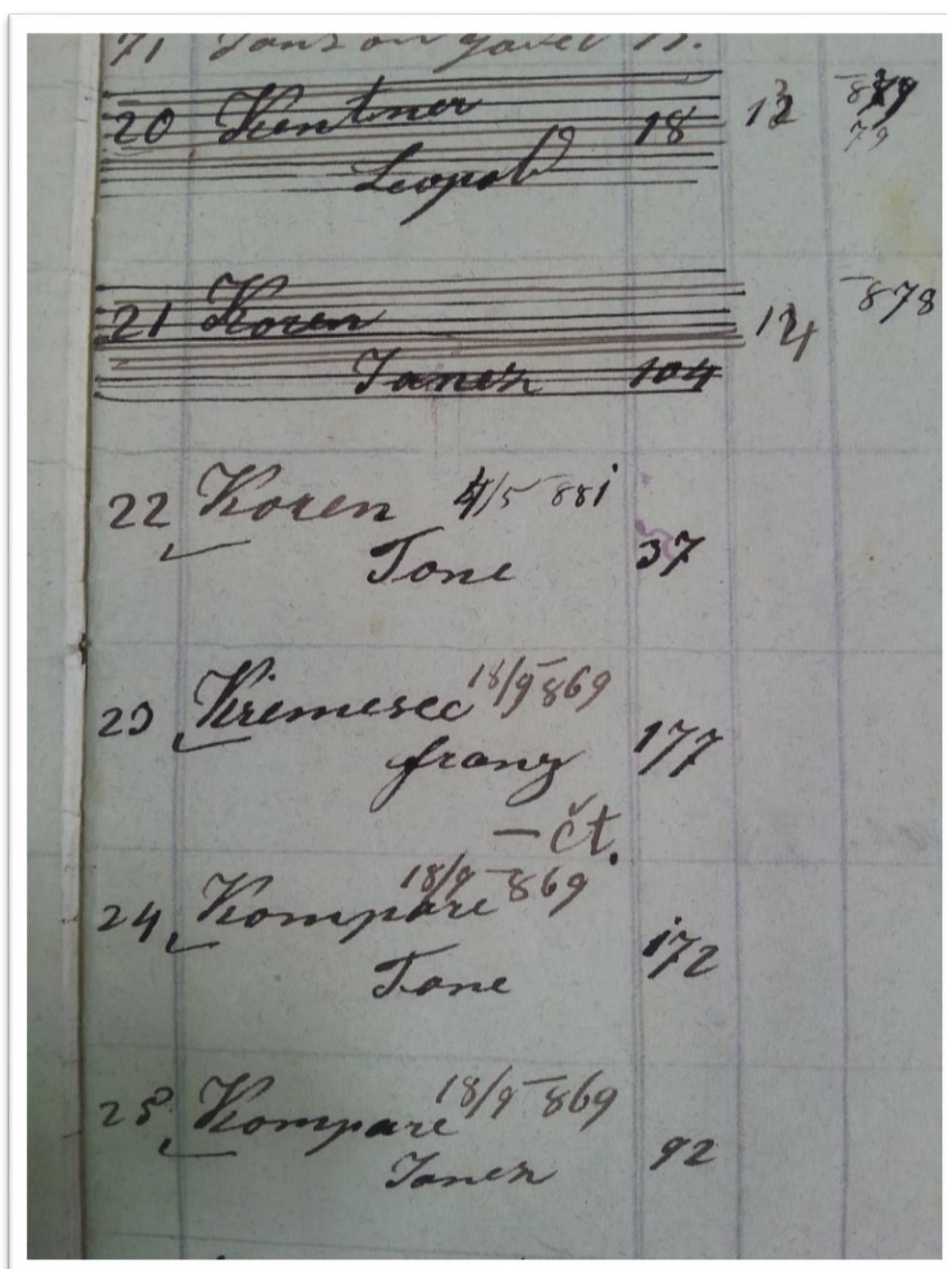 20 Kentner 18 12
Leopold
21 Koren 12 878
Janez 104
22 Koren 4/5 881
Tone 37
23 Kremesec 18/9 869
franz 177
— čt.
24 Kompare 18/9 869
Tone 172
25 Kompare 18/9 869
Janez 92